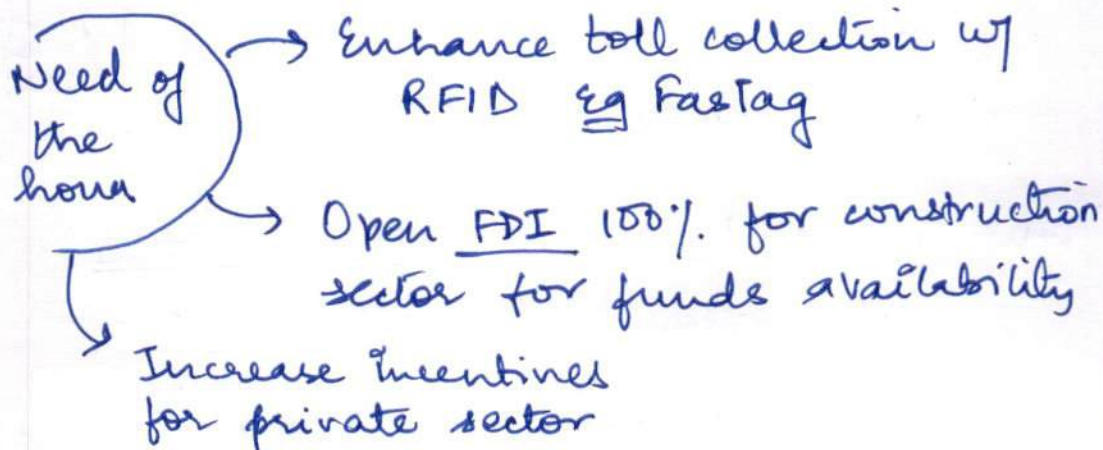 Need of
the
hour
Enhance toll collection w/
RFID eg Fastag
Open FDI 100%. for construction
sector for funds availability
Increase incentives
for private sector